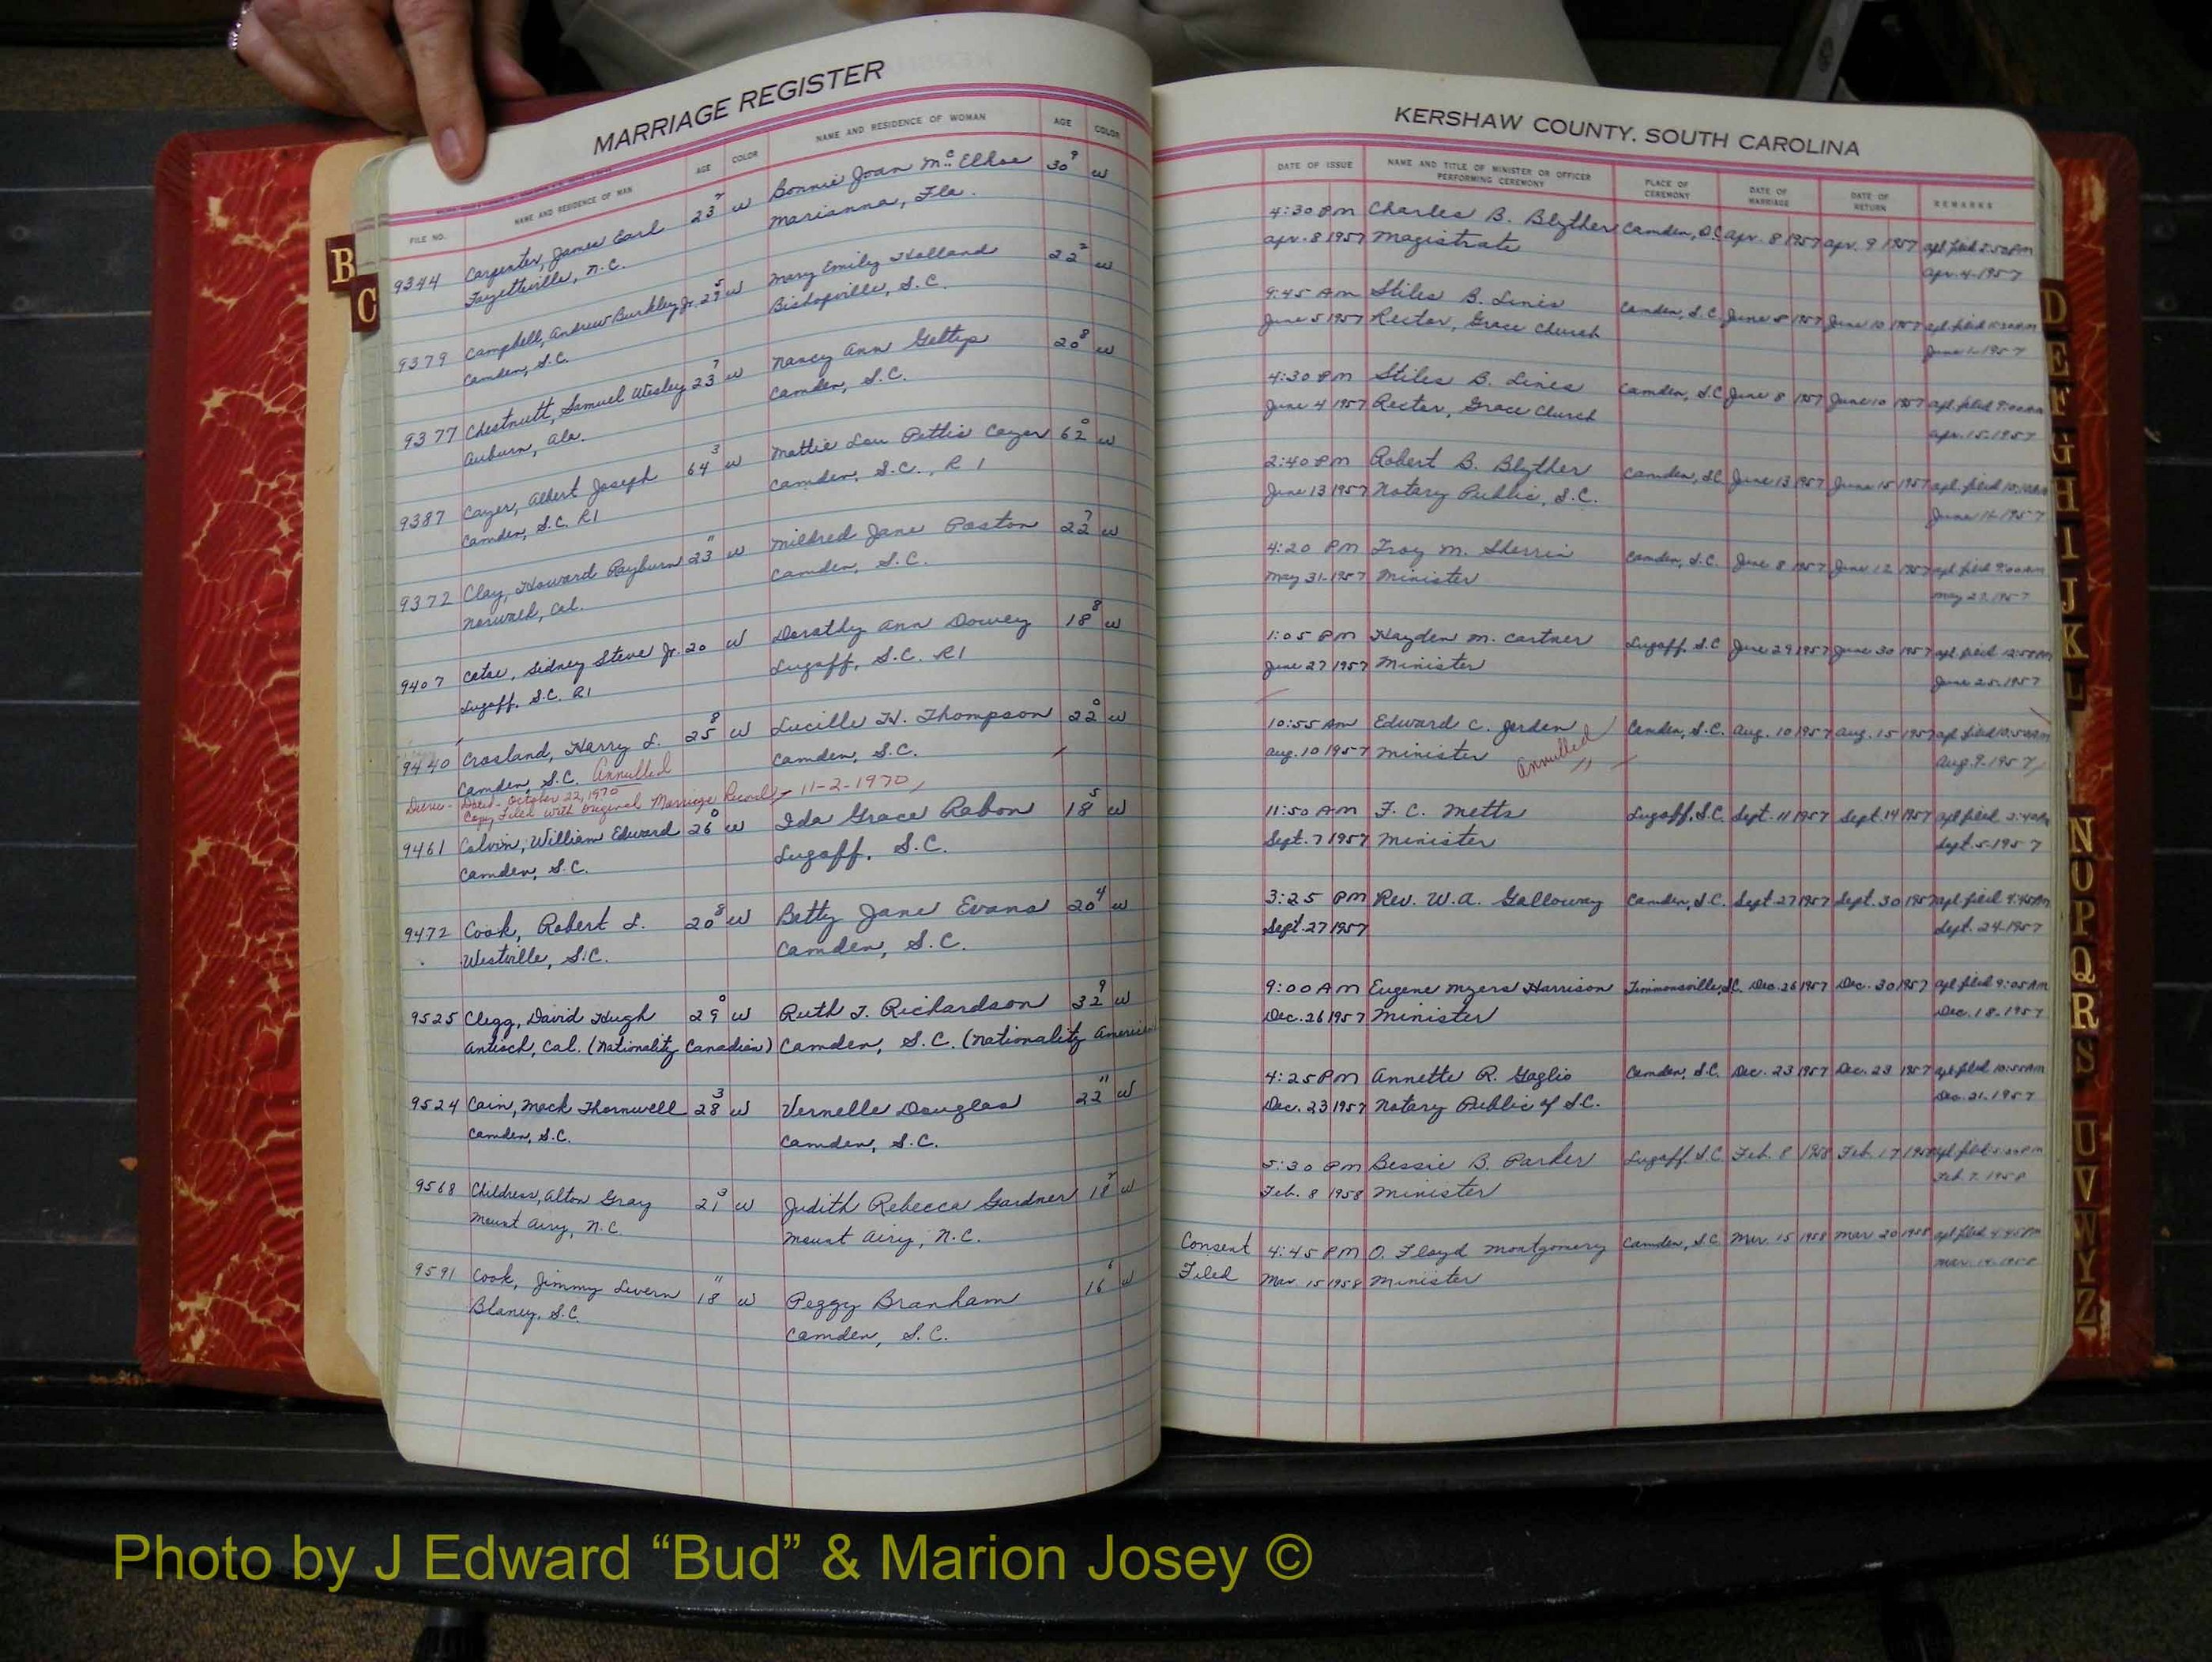 MARRIAGE REGISTER
FILE NO. NAME AND RESIDENCE OF MAN AGE COLOR NAME AND RESIDENCE OF WOMAN AGE COLOR
9344 Carpenter, James Earl 23 7 w Bonnie Joan McElhoe 30 9 w
Fayetteville, N.C. Marianna, Fla.
9379 Campbell, Andrew Burkley Jr. w Mary Emily Holland 22 2 w
Camden, S.C. Bishopville, S.C.
9377 Chestnutt, Samuel Wesley 23 7 w Nancy Ann Gettys 20 8 w
Auburn, Ala. Camden, S.C.
9387 Cayer, Albert Joseph 64 3 w Mattie Lou Pettis Cayer 62 0 w
Camden, S.C. R1 Camden, S.C., R1
9372 Clay, Howard Rayburn 23 11 w Mildred Jane Paston 22 7 w
Norwalk, Cal. Camden, S.C.
9407 Catoe, Sidney Steve Jr. 20 w Dorothy Ann Dowey 18 8 w
Lugoff, S.C. R1 Lugoff, S.C. R1
9440 Crosland, Harry L. 25 8 w Lucille H. Thompson 22 0 w
Camden, S.C. Annulled Camden, S.C.
Decree - Dated - October 22, 1970
Copy Filed with Original Marriage Record - 11-2-1970
9461 Colvin, William Edward 26 0 w Ida Grace Rabon 18 5 w
Camden, S.C. Lugoff, S.C.
9472 Cook, Robert L. 20 8 w Betty Jane Evans 20 4 w
Westville, S.C. Camden, S.C.
9525 Clegg, David Hugh 29 0 w Ruth T. Richardson 32 9 w
Antioch, Cal. (Nationality Canadian) Camden, S.C. (Nationality American
9524 Cain, Mack Thornwell 28 3 w Vernelle Douglas 22 11 w
Camden, S.C. Camden, S.C.
9568 Childress, Alton Gray 21 3 w Judith Rebecca Gardner 18 7 w
Mount Airy, N.C. Mount Airy, N.C.
9591 Cook, Jimmy Levern 18 11 w Peggy Branham 16 6 w
Blaney, S.C. Camden, S.C.
KERSHAW COUNTY, SOUTH CAROLINA
DATE OF ISSUE NAME AND TITLE OF MINISTER OR OFFICER PERFORMING CEREMONY PLACE OF CEREMONY DATE OF MARRIAGE DATE OF RETURN REMARKS
4:30 PM Charles B. Blyther Camden, S.C. Apr. 8 1957 Apr. 9 1957 apl filed 2:50 PM
Apr. 8 1957 Magistrate Apr. 4-1957
9:45 AM Stiles B. Lines Camden, S.C. June 8 1957 June 10 1957 apl filed
June 5 1957 Rector, Grace Church June 1-1957
4:30 PM Stiles B. Lines Camden, S.C. June 8 1957 June 10 1957 apl filed 9:00 AM
June 4 1957 Rector, Grace Church Apr. 15-1957
2:40 PM Robert B. Blyther Camden, S.C. June 13 1957 June 15 1957 apl filed 10:10 AM
June 13 1957 Notary Public, S.C. June 1957
4:20 PM Troy M. Sherrin Camden, S.C. June 8 1957 June 12 1957 apl filed 9:00 AM
May 31-1957 Minister May 27, 1957
1:05 PM Hayden M. Cartner Lugoff, S.C. June 29 1957 June 30 1957 apl filed 12:50 PM
June 27 1957 Minister June 25-1957
10:55 AM Edward C. Jordan Camden, S.C. Aug. 10 1957 Aug. 15 1957 apl filed 10:50 AM
Aug. 10 1957 Minister Annulled Aug. 9-1957
11:50 AM F. C. Metts Lugoff, S.C. Sept. 11 1957 Sept. 14 1957 apl filed
Sept. 7 1957 Minister Sept. 5-1957
3:25 PM Rev. W.A. Galloway Camden, S.C. Sept. 27 1957 Sept. 30 1957 apl filed
Sept. 27 1957 Sept. 24-1957
9:00 AM Eugene Myers Harrison Timmonsville, S.C. Dec. 26 1957 Dec. 30 1957 apl filed 9:05 AM
Dec. 26 1957 Minister Dec. 18, 1957
4:25 PM Annette R. Gaglio Camden, S.C. Dec. 23 1957 Dec. 23 1957 apl filed 10:50 AM
Dec. 23 1957 Notary Public of S.C. Dec. 21, 1957
5:30 PM Bessie B. Parker Lugoff, S.C. Feb. 8 1958 Feb. 17 1958 apl filed
Feb. 8 1958 Minister Feb. 7, 1958
Consent 4:45 PM O. Floyd Montgomery Camden, S.C. Mar. 15 1958 Mar 20 1958 apl filed 4:45 PM
Filed Mar. 15 1958 Minister Mar. 14, 1958
B
C
D
E
F
G
H
I
J
K
L
N
O
P
Q
R
S
U
V
W
Y
Z
Photo by J Edward “Bud” & Marion Josey ©